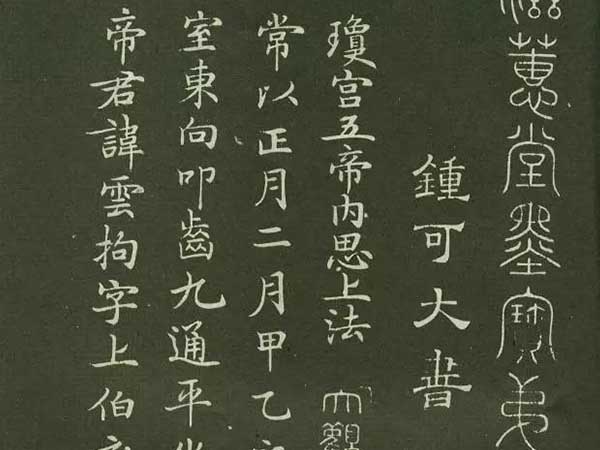 蕙堂墨寶弟
鍾可大書
瓊宮五帝內思上法
大觀
常以正月二月甲乙
室東向叩齒九通平坐
帝君諱雲拘字上伯